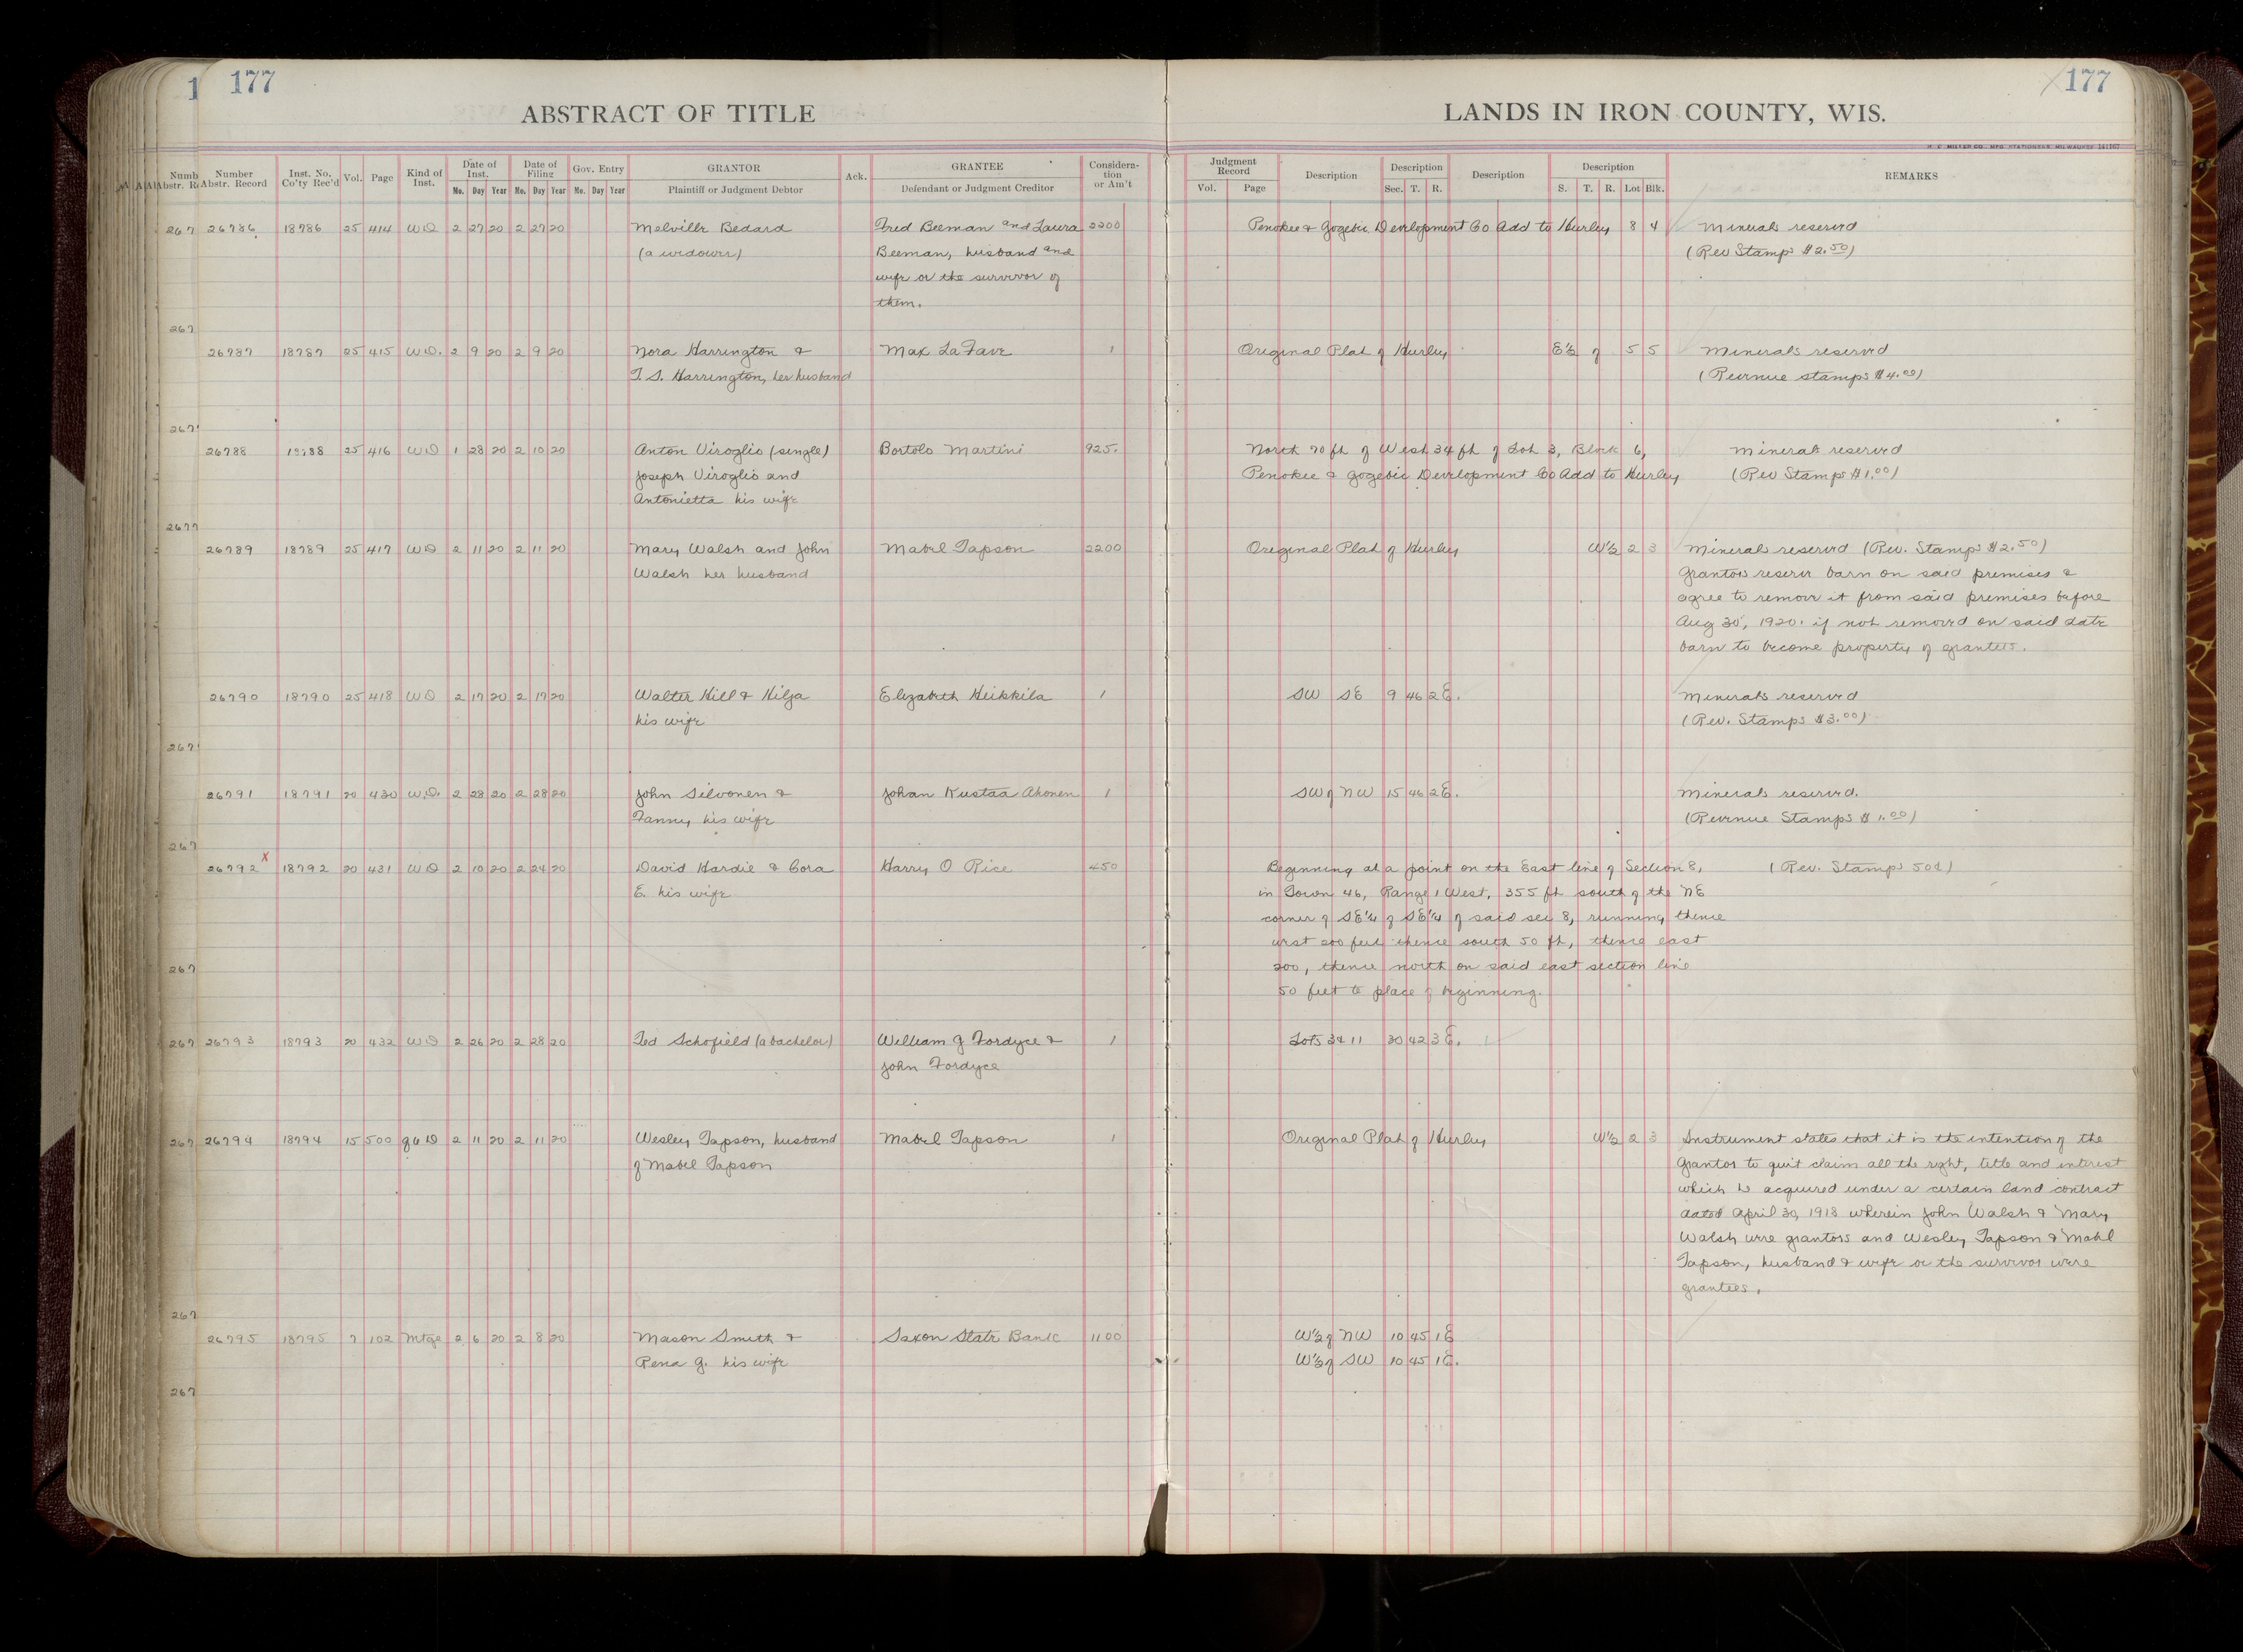 1 177
177
ABSTRACT OF TITLE
LANDS IN IRON COUNTY, WIS.
H. C. MILLER CO. MFG. STATIONERS MILWAUKEE 141167
Numb Abstr. Re Number Abstr. Record Inst. No. Co'ty Rec'd Vol. Page Kind of Inst. Date of Inst. Mo. Day Year Date of Filing Mo. Day Year Gov. Entry Mo. Day Year GRANTOR Plaintiff or Judgment Debtor Ack. GRANTEE Defendant or Judgment Creditor Considera- tion or Am't
Judgment Record Vol. Page Description Description Sec. T. R. Description Description S. T. R. Lot Blk. REMARKS
267 26786 18786 25 414 W D 2 27 20 2 27 20 Melville Bedard Fred Beeman and Laura 2200 Penokee & Gogebic Development Co Add to Hurley 8 4 Minerals reserved
(a widower) Beeman, husband and (Rev Stamps $2.50)
wife or the survivor of
them.
267
26787 18787 25 415 W.D. 2 9 20 2 9 20 Nora Harrington & Max LaFave 1 Original Plat of Hurley E½ of 5 5 Minerals reserved
T. S. Harrington, her husband (Revenue stamps $4.00)
267
26788 18788 25 416 W D 1 28 20 2 10 20 Anton Viroglio (single) Bortolo Martini 925. North 70 ft of West 34 ft of Lot 3, Block 6, Minerals reserved
Joseph Viroglio and Penokee & Gogebic Development Co Add to Hurley (Rev Stamps $1.00)
Antonietta his wife
2677
26789 18789 25 417 W D 2 11 20 2 11 20 Mary Walsh and John Mabel Tapson 2200 Original Plat of Hurley W½ 2 3 Minerals reserved (Rev. Stamps $2.50)
Walsh her husband Grantors reserve barn on said premises &
agree to remove it from said premises before
Aug 30, 1920. if not removed on said date
barn to become property of grantees.
26790 18790 25 418 W D 2 17 20 2 17 20 Walter Hill & Hilja Elizabeth Heikkila 1 SW SE 9 46 2 E. Minerals reserved
his wife (Rev. Stamps $3.00)
267
26791 18791 20 430 W.D. 2 28 20 2 28 20 John Silvonen & Johan Kustaa Ahonen 1 SW of NW 15 46 2 E. Minerals reserved.
Fanny his wife (Revenue Stamps $1.00)
267
26792 x 18792 20 431 W D 2 10 20 2 24 20 David Hardie & Cora Harry O Rice 450 Beginning at a point on the East line of Section 8, (Rev. Stamps 50¢)
E. his wife in Town 46, Range 1 West, 355 ft south of the NE
corner of SE¼ of SE¼ of said sec 8, running thence
west 200 feet thence south 50 ft, thence east
200, thence north on said east section line
267
50 feet to place of beginning.
267 26793 18793 20 432 W D 2 26 20 2 28 20 Ted Schofield (a bachelor) William G Fordyce & 1 Lots 3 & 11 30 42 3 E.
John Fordyce
267 26794 18794 15 500 Q C D 2 11 20 2 11 20 Wesley Tapson, husband Mabel Tapson 1 Original Plat of Hurley W½ 2 3 Instrument states that it is the intention of the
of Mabel Tapson Grantor to quit claim all the right, title and interest
which is acquired under a certain land contract
dated April 30, 1918 wherein John Walsh & Mary
Walsh were grantors and Wesley Tapson & Mabel
Tapson, husband & wife or the survivor were
grantees.
267
26795 18795 7 102 Mtge 2 6 20 2 8 20 Mason Smith & Saxon State Bank 1100 W½ of NW 10 45 1 E
Rena G. his wife W½ of SW 10 45 1 E.
267